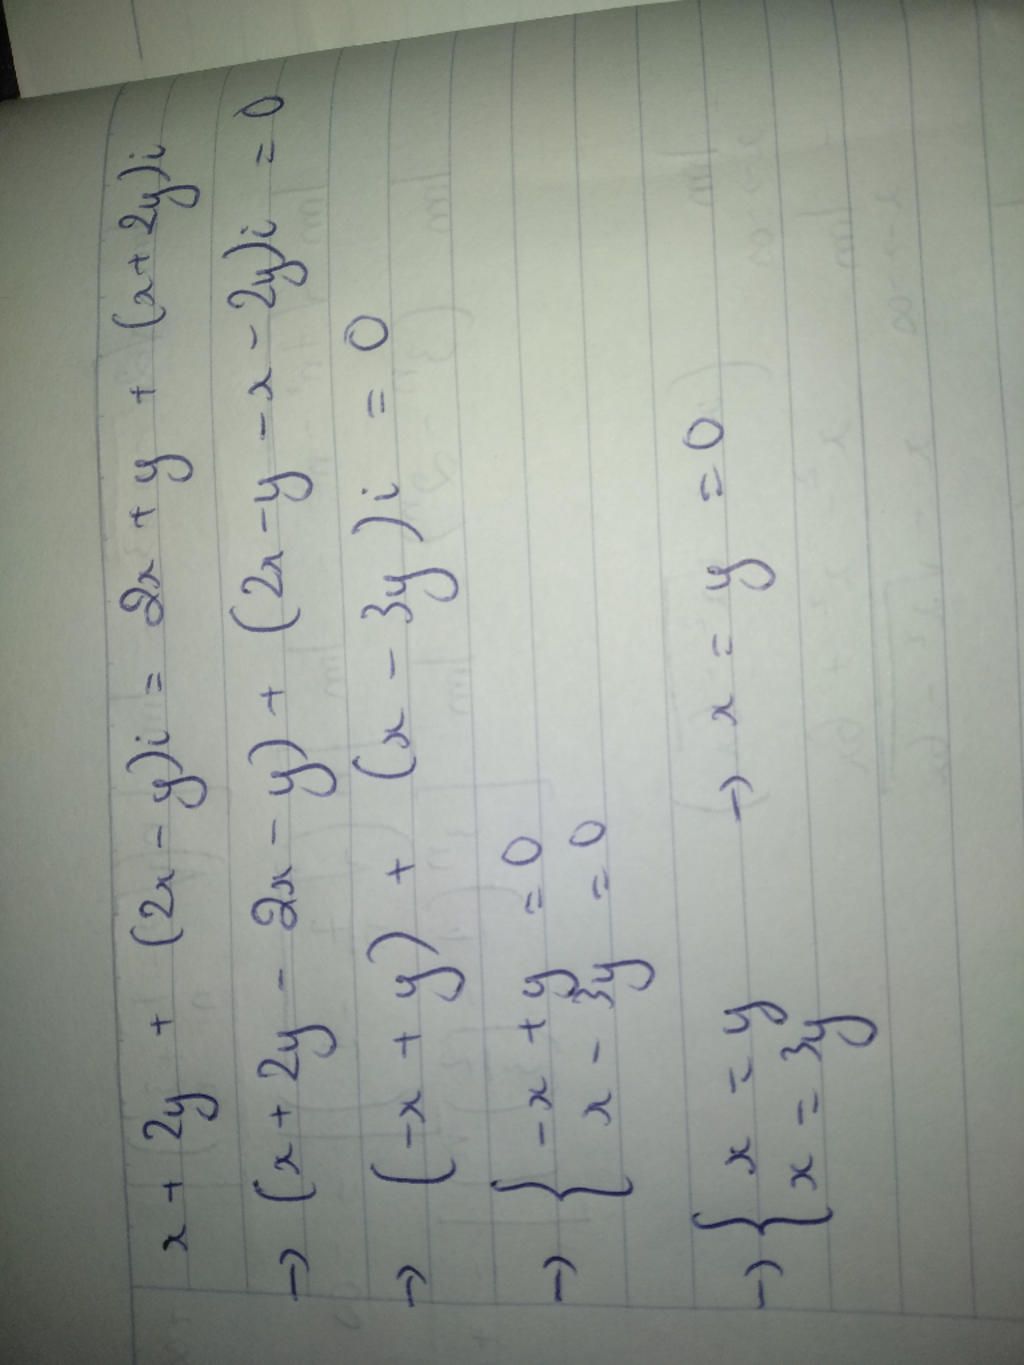 x + 2y + (2x - y)i = 2x + y + (x + 2y)i
→ (x + 2y - 2x - y) + (2x - y - x - 2y)i = 0
→ (-x + y) + (x - 3y)i = 0
→ { -x + y = 0
x - 3y = 0
→ { x = y → x = y = 0
x = 3y